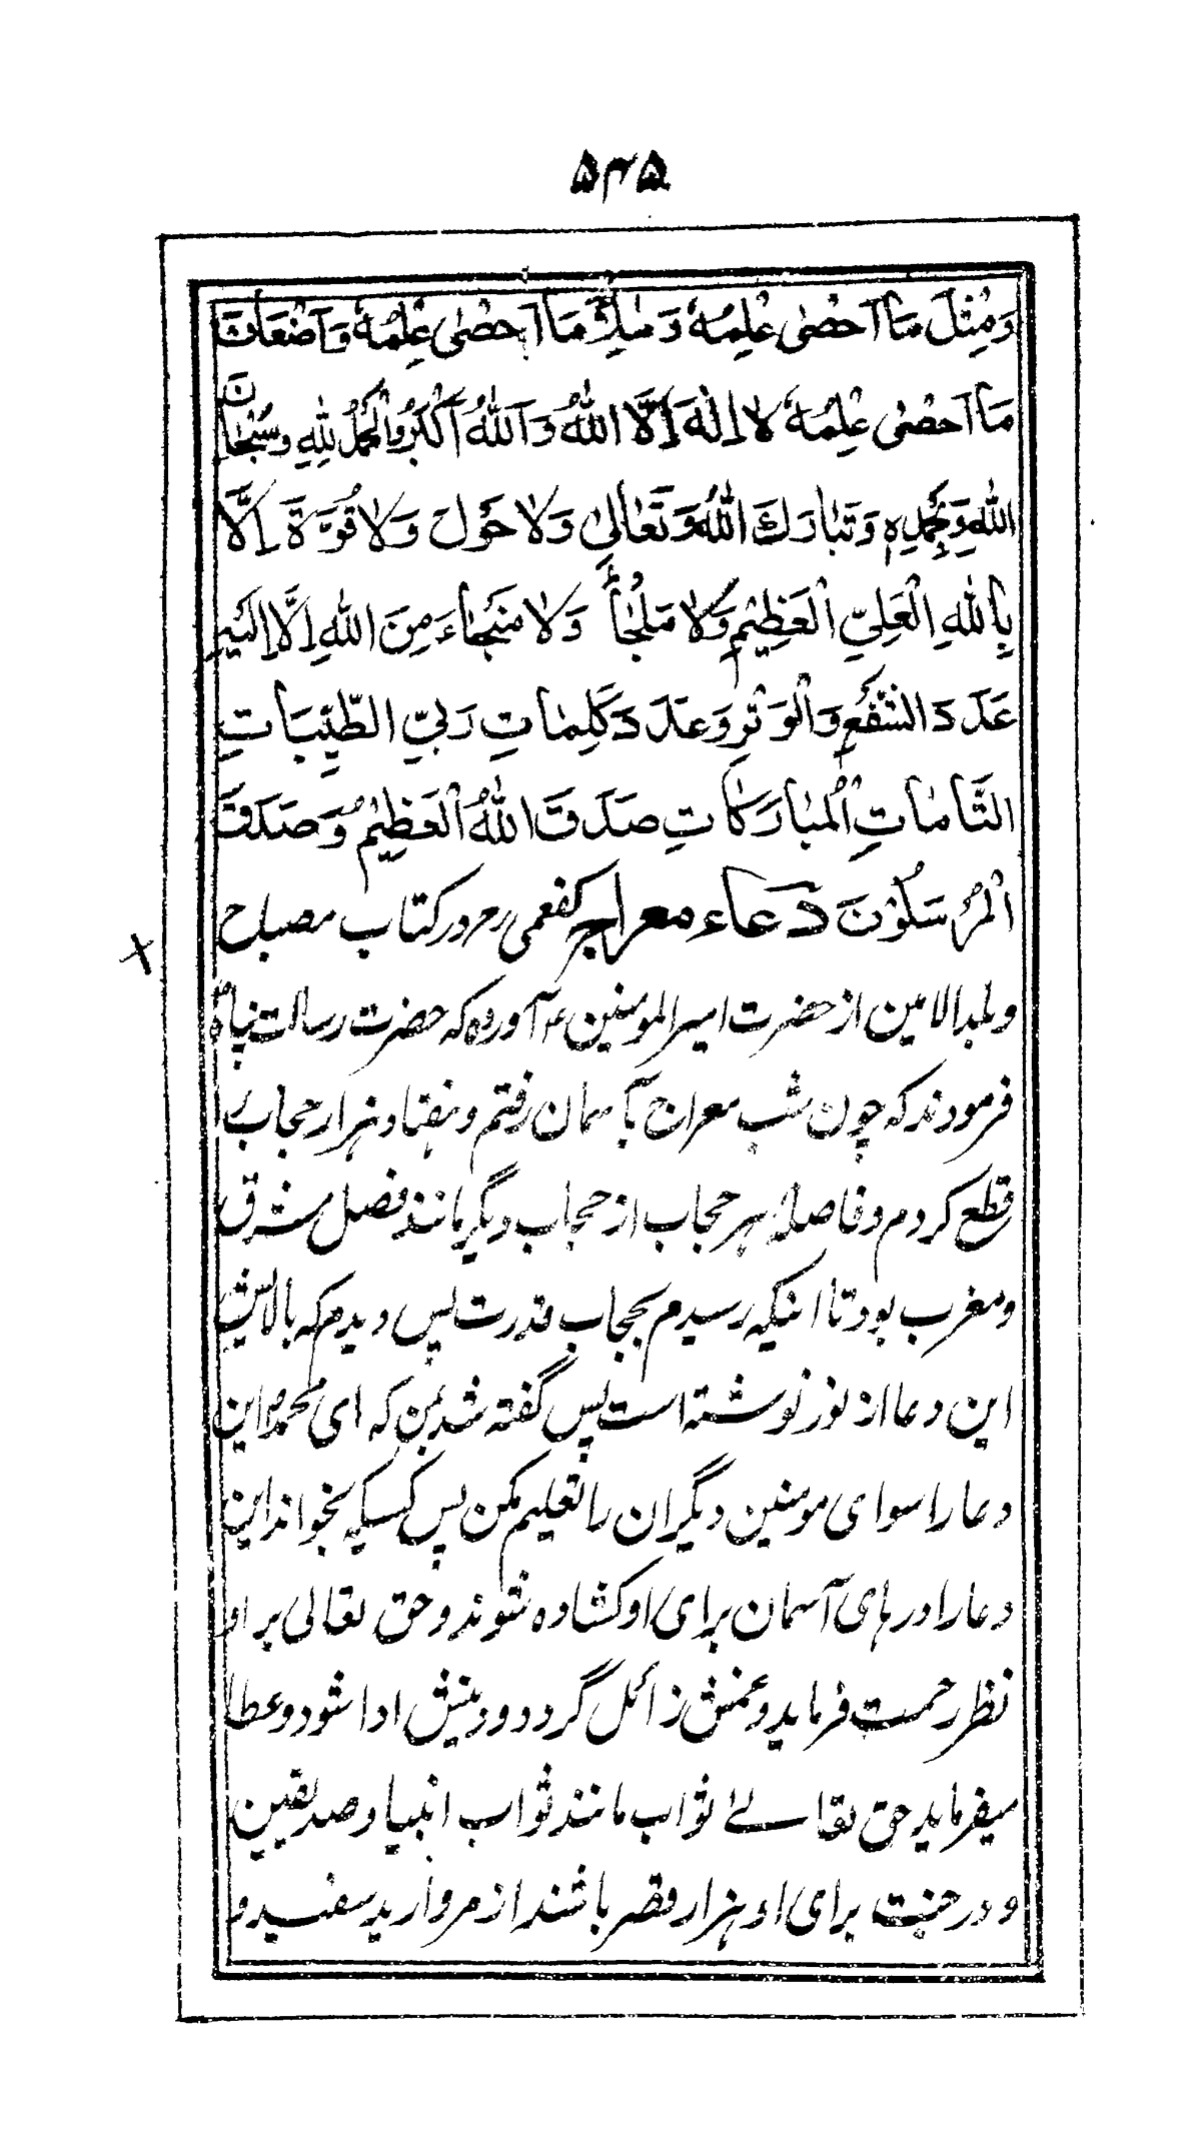 ۵۴۵
وَمِثْلَ مَا اَحْصٰى عِلْمُهٗ وَ مِلْأَ مَا اَحْصٰى عِلْمُهٗ وَاَضْعَافَ
مَا اَحْصٰى عِلْمُهٗ لا اِلٰهَ اِلَّا اللّٰهُ وَاللّٰهُ اَكْبَرُ وَالْحَمْدُ لِلّٰهِ وَسُبْحَانَ
اللّٰهِ وَبِحَمْدِهٖ وَتَبَارَكَ اللّٰهُ وَتَعَالٰى وَلا حَوْلَ وَلا قُوَّةَ اِلَّا
بِاللّٰهِ الْعَلِيِّ الْعَظِيْمِ وَلا مَلْجَأَ وَلا مَنْجَاءَ مِنَ اللّٰهِ اِلَّا اِلَيْهِ
عَدَدَ الشَّفْعِ وَالْوَتْرِ وَعَدَدَ كَلِمَاتِ رَبِّيَ الطَّيِّبَاتِ
التَّامَاتِ الْمُبَارَكَاتِ صَدَقَ اللّٰهُ الْعَظِيْمُ وَصَدَقَ
الْمُرْسَلُوْنَ دعاء معراج کفعمی رح در کتاب مصباح
و بلد الامین از حضرت امیر المومنین ع آورده که حضرت رسالت پناه ص
فرمودند که چون شب معراج بآسمان رفتم و هفتاد هزار حجاب را
قطع کردم و فاصلۀ هر حجاب از حجاب دیگر مانند فصل مشرق
و مغرب بود تا اینکه رسیدم بحجاب قدرت پس دیدم که بالایش
این دعا از نور نوشته است پس گفته شد بمن که ای محمد ص این
دعا را سوای مومنین دیگران را تعلیم مکن پس کسیکه بخواند این
دعا را درهای آسمان برای او کشاده شوند و حق تعالی بر او
نظر رحمت فرماید و غمش زائل گردد و دینش ادا شود و عطا
میفرماید حق تعالے ثواب مانند ثواب انبیا و صدیقین
و در جنت برای او هزار قصر باشند از مروارید سفید و